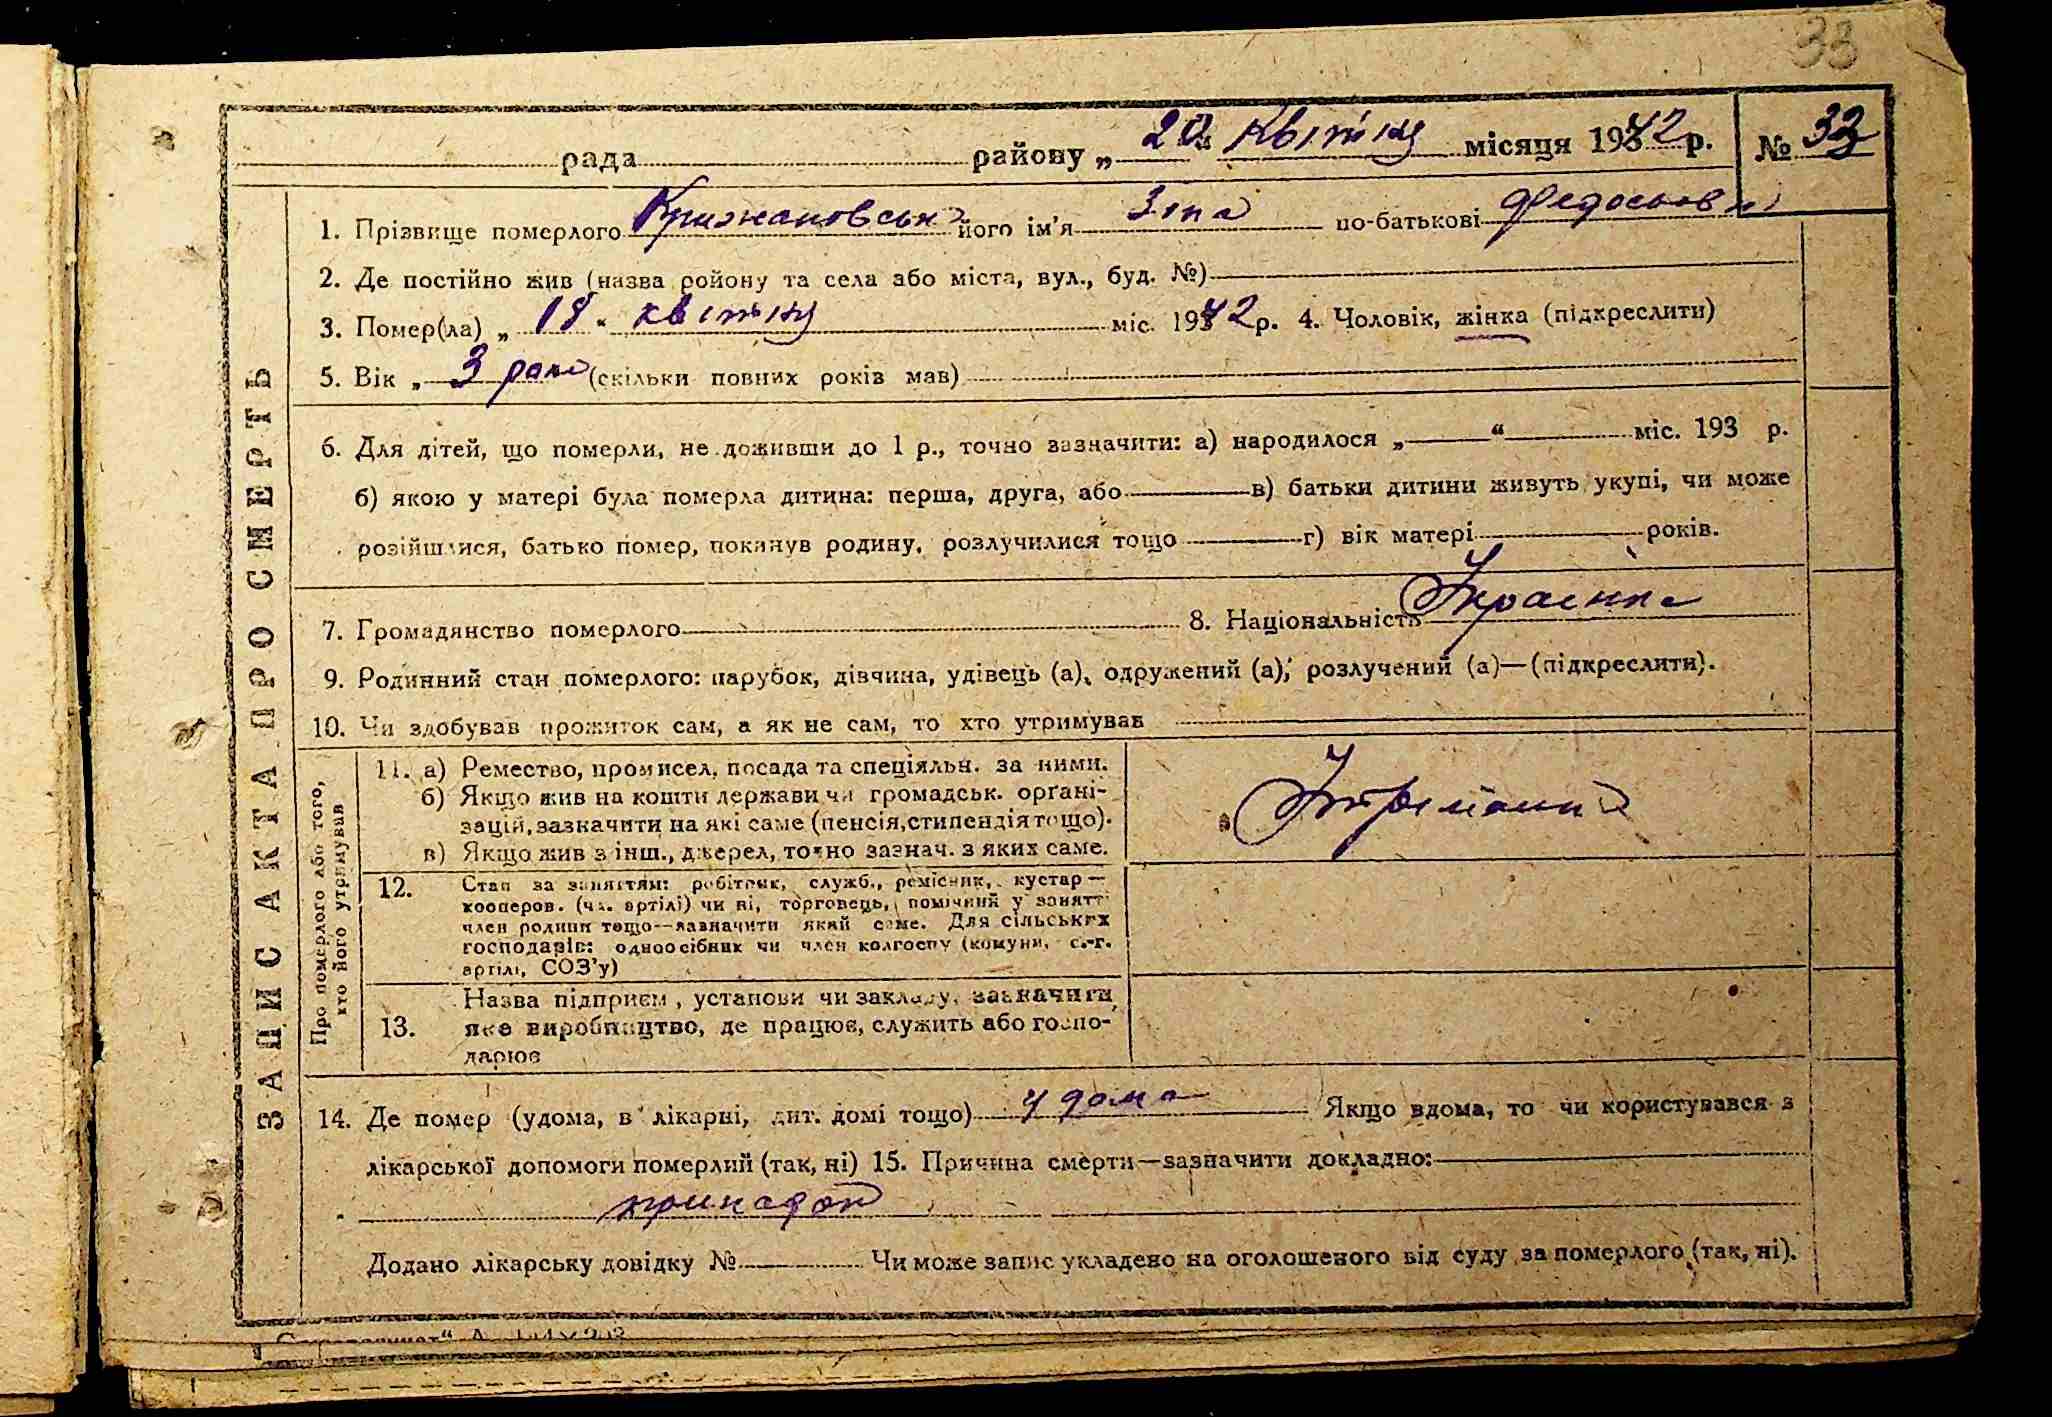 33
рада района „20“ квітня місяця 1942 р. № 33
ЗАПИС АКТА ПРО СМЕРТЬ
1. Прізвище померлого Крижановськ його ім'я Зіна по-батькові
2. Де постійно жив (назва ройону та села або міста, вул., буд. №)
3. Помер(ла) „18“ квітня міс. 1942 р. 4. Чоловік, жінка (підкреслити)
5. Вік „ 3 роки (скільки повних років мав)
6. Для дітей, що померли, не доживши до 1 р., точно зазначити: а) народилося „ “ міс. 193 р.
б) якою у матері була померла дитина: перша, друга, або в) батьки дитини живуть укупі, чи може
розійшлися, батько помер, покинув родину, розлучилися тощо г) вік матері років.
7. Громадянство померлого 8. Національність Украінка
9. Родинний стан померлого: парубок, дівчина, удівець (а), одружений (а), розлучений (а)—(підкреслити).
10. Чи здобував прожиток сам, а як не сам, то хто утримував
Про померлого або того,
хто його утримував
11. а) Ремество, промисел, посада та спеціяльн. за ними.
б) Якщо жив на кошти держави чи громадськ. органі-
зацій, зазначити на які саме (пенсія, стипендія тощо).
в) Якщо жив з інш., джерел, точно зазнач. з яких саме.
12. Стан за заняттям: робітник, служб., ремісник, кустар—
кооперов. (чл. артілі) чи ні, торговець, помічний у занятті
член родини тощо—зазначити який саме. Для сільських
господарів: одноосібник чи член колгоспу (комуни, с.-г.
артілі, СОЗ'у)
13. Назва підприєм., установи чи закладу, зазначити
яке виробництво, де працює, служить або госпо-
дарює
14. Де помер (удома, в лікарні, дит. домі тощо) у дома Якщо вдома, то чи користувався з
лікарської допомоги померлий (так, ні) 15. Причина смерти—зазначити докладно:
припадок
Додано лікарську довідку № Чи може запис укладено на оголошеного від суду за померлого (так, ні).